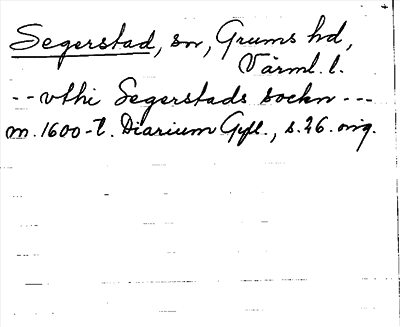 Segerstad, sn, Grums hd,
Värml. l.
-- vthi Segerstads sockn ---
m. 1600-t. Diarium Gyll., s. 26. orig.